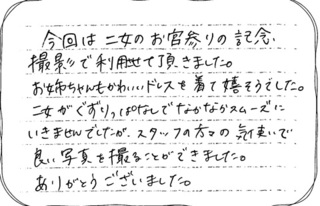 今回は二女のお宮参りの記念
撮影で利用せて頂きました。
お姉ちゃんもかわいいドレスを着て嬉そうでした。
二女がぐずりっぱなしでなかなかスムーズに
いきませんでしたが、スタッフの方々の気遣いで
良い写真を撮ることができました。
ありがとうございました。